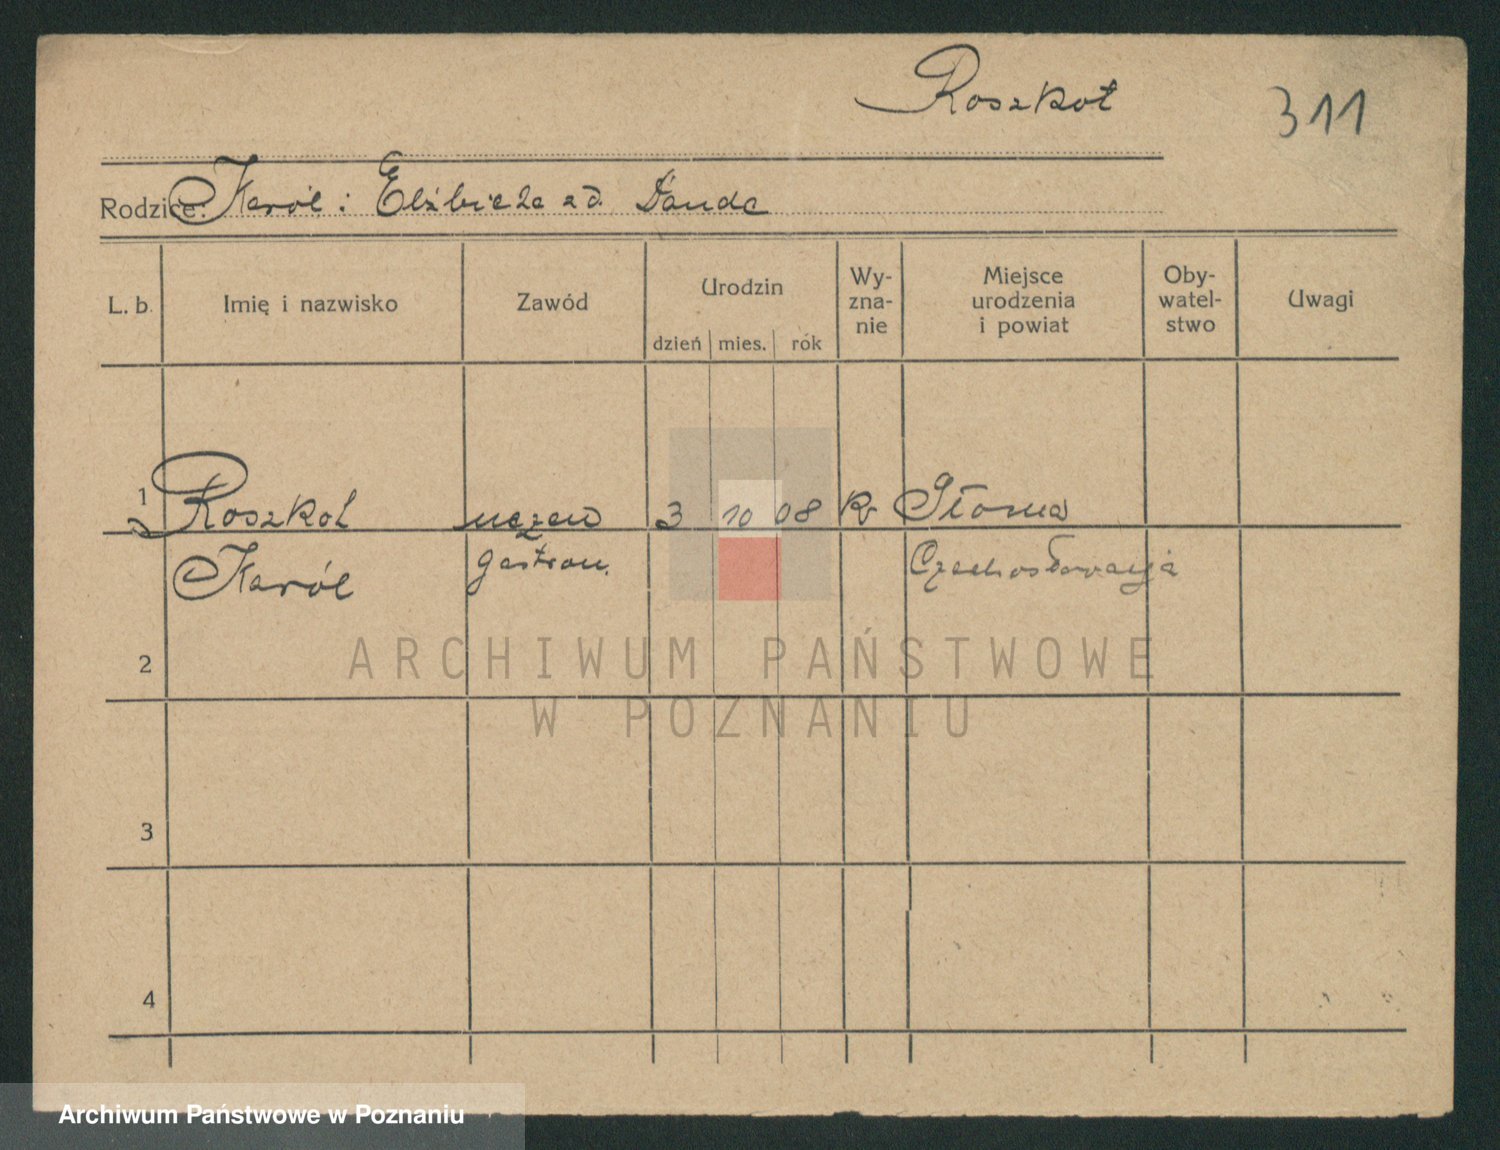 Roszkot
311
Rodzice: Karól i Elżbieta zd. Danda
L. b. Imię i nazwisko Zawód Urodzin dzień mies. rok Wy-zna-nie Miejsce urodzenia i powiat Oby-watel-stwo Uwagi
1 Roszkot uczeń 3 10 08 Rk
Karól gastron. Czechosłowacja
2
3
4
ARCHIWUM PAŃSTWOWE
W POZNANIU
Archiwum Państwowe w Poznaniu